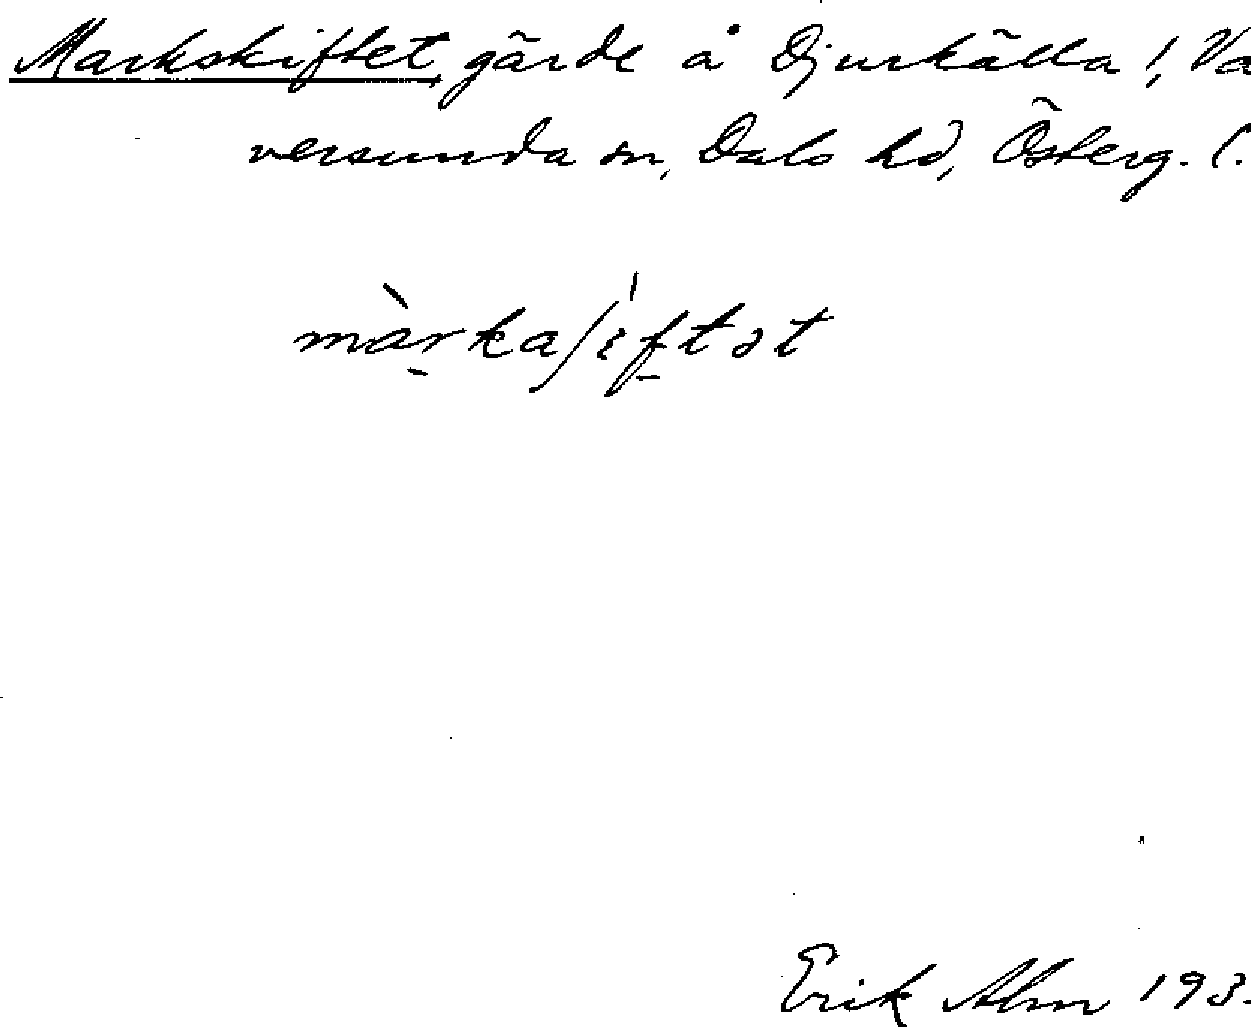 Markskiftet, gärde å Djurkälla !, Vä
versunda sn, Dals hd, Österg. l.
màrkaʃìftət
Erik Alm 193